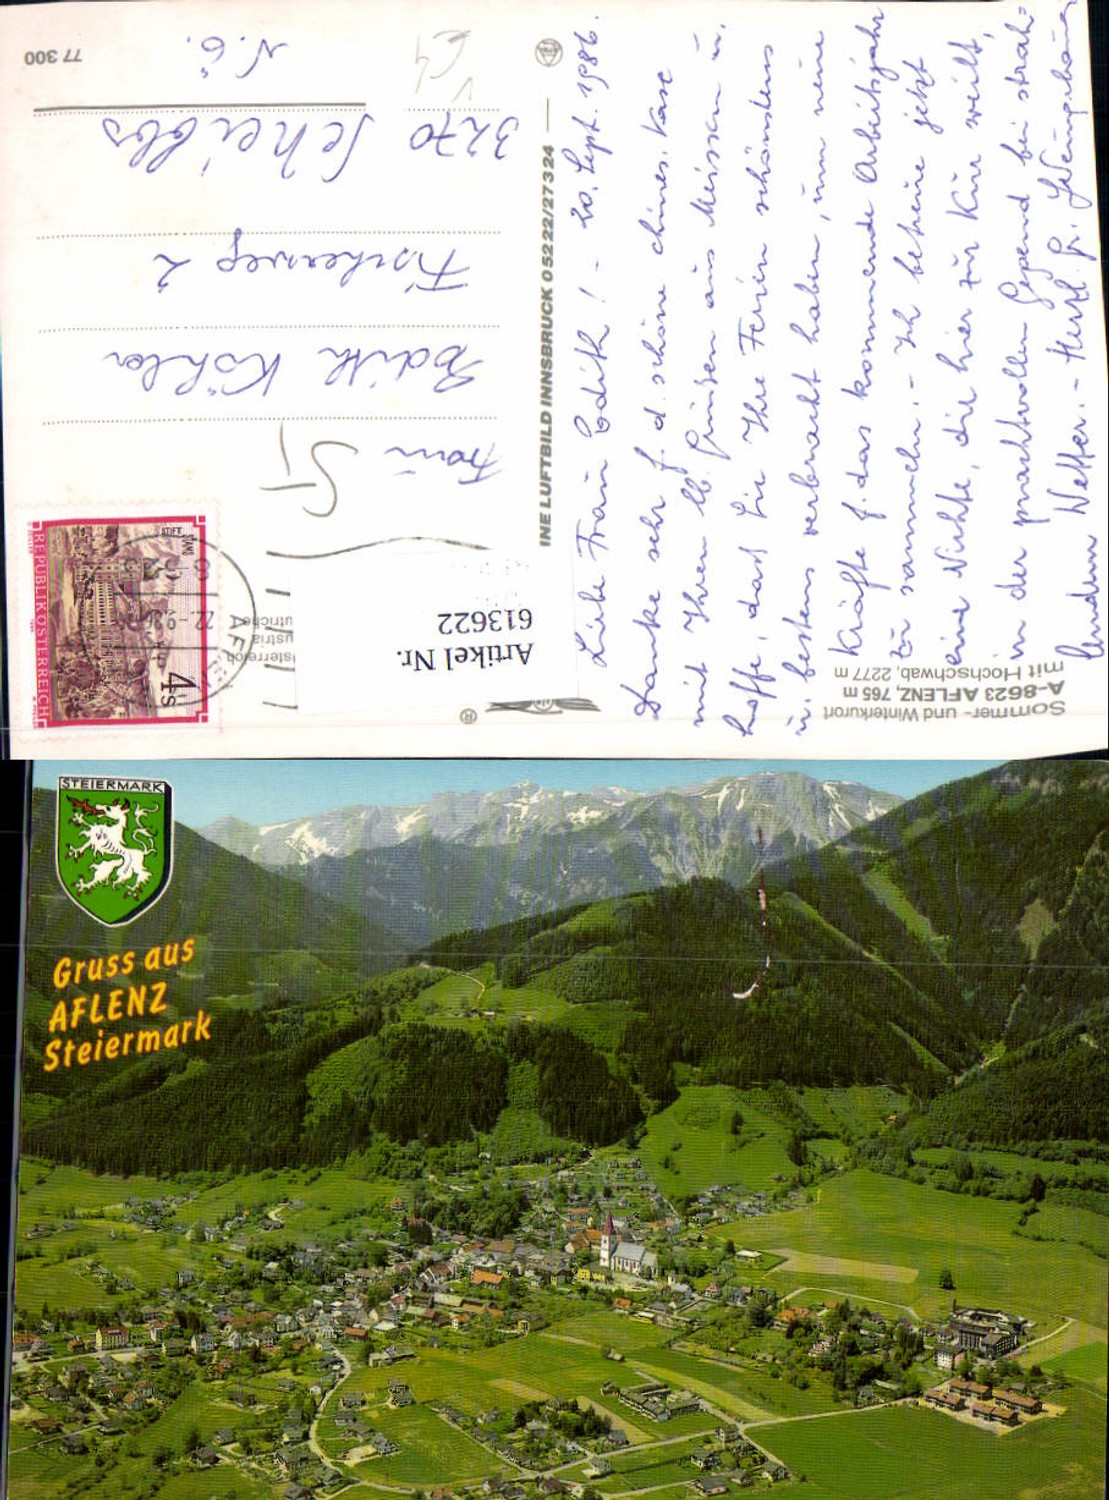 77 300
N.Ö.
3270 Scheibbs
Fischerweg 2
Edith Köhler
Frau
INE LUFTBILD INNSBRUCK 0 52 22/2 73 24
Artikel Nr.
613622
REPUBLIK ÖSTERREICH
STIFT
4 S
Sommer- und Winterkurort
A-8623 AFLENZ, 765 m
mit Hochschwab, 2277 m
Liebe Frau Edith! - 20. Sept. 1986.
Danke sehr f. d. schöne chines. Vase
mit Ihren lb. Grüßen aus Meissen u.
hoffe, dass Sie Ihre Ferien schönstens
u. bestens verbracht haben, um neue
Kräfte f. das kommende Arbeitsjahr
zu sammeln. - Ich betreue jetzt
eine Nichte, die hier zur Kur weilt,
in der prachtvollen Gegend bei strah=
lendem Wetter. - Herzl. Gr.
STEIERMARK
Gruss aus
AFLENZ
Steiermark